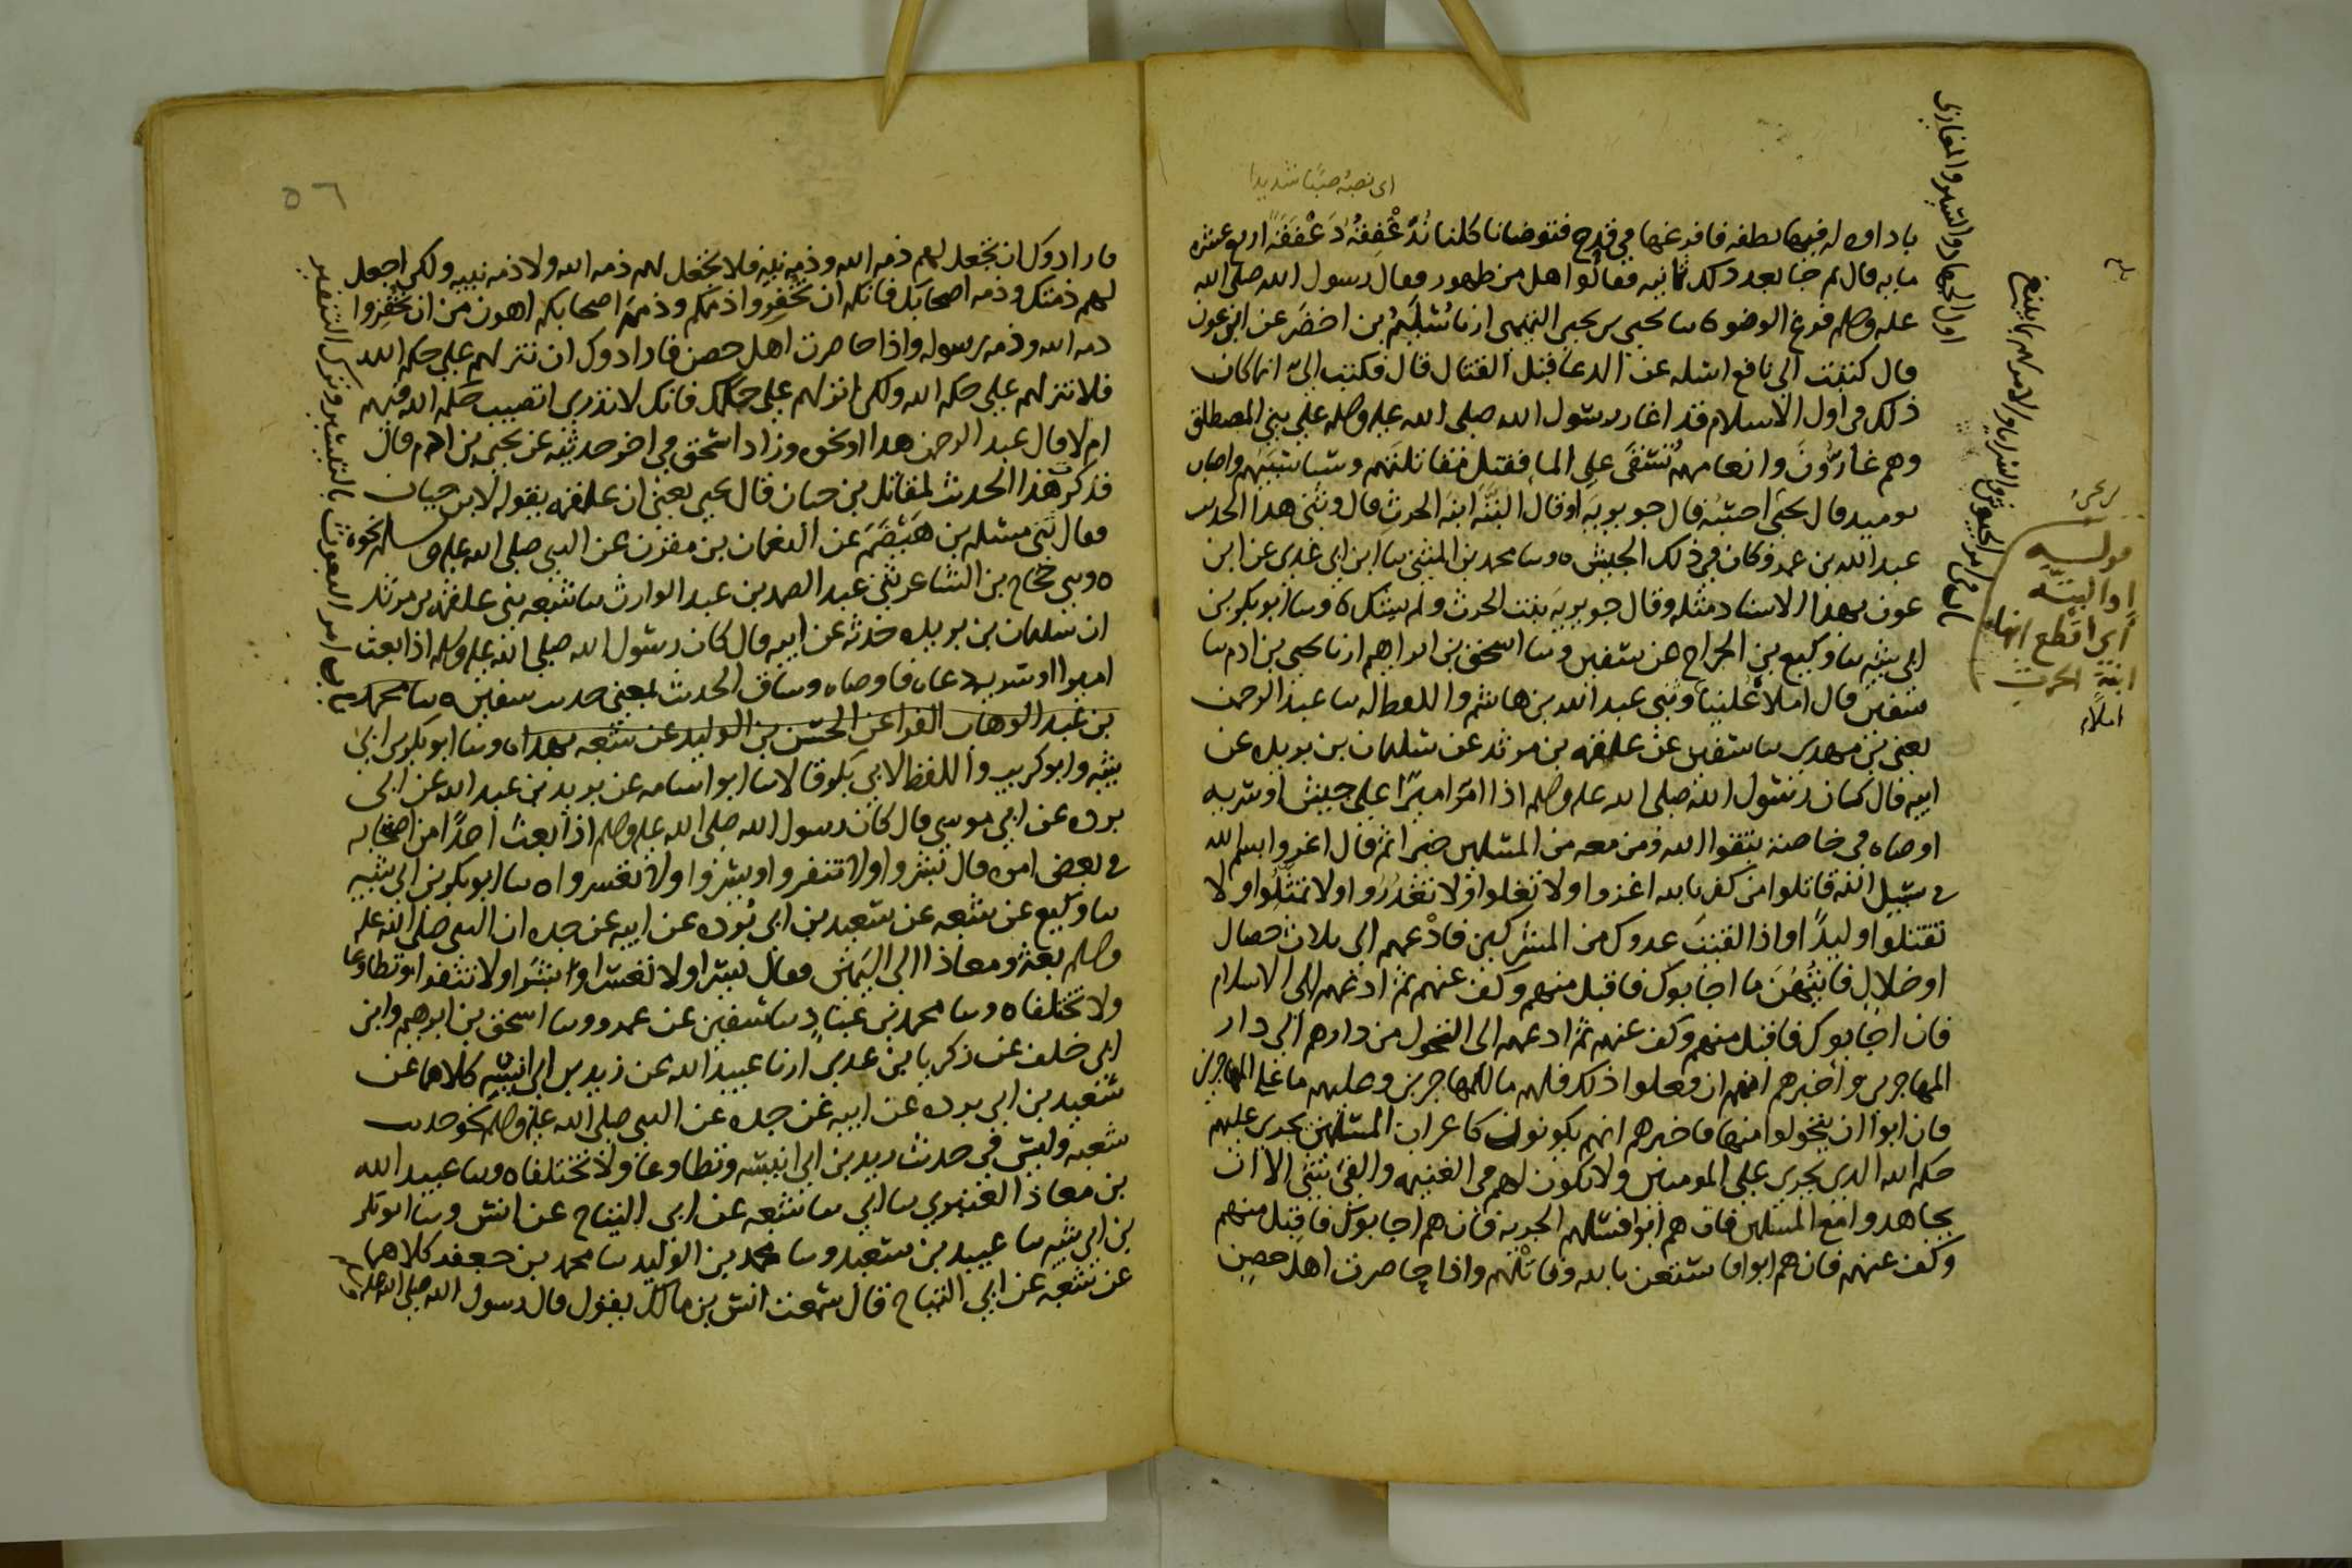 اى نصبه صبا شديدا
باداوه له فيها نطفه فافرغها في قدح فتوضانا كلنا ندغفقه دغفقة اربع عشره
مايه قال ثم جا بعد ذلك ثمانيه فقالوا هل من طهور فقال رسول الله صلى الله
عليه وسلم فرغ الوضو ثنا يحيى بن يحيى التميمى ارنا سليم بن اخضر عن ابن عون
قال كتبت الى نافع اسله عن الدعا قبل القتال قال فكتب الى انما كان
ذلك في اول الاسلام قد اغار رسول الله صلى الله عليه وسلم على بني المصطلق
وهم غارون وانعامهم تسقى على الما فقتل مقاتلتهم وسبا سبيهم واصاب
يوميد قال يحيى احسبه قال جويريه او قال البتة ابنة الحرث قال وثنى هذا الحديث
عبد الله بن عمر وكان في ذلك الجيش ه وثنا محمد بن المثنى ثنا ابن ابي عدي عن ابن
عون بهذا الاسناد مثله وقال جويرية بنت الحرث ولم يشك ه وثنا ابو بكر بن
ابي شيبه ثنا وكيع بن الجراح عن سفين وثنا اسحق بن ابراهيم ارنا يحيى بن ادم ثنا
سفين قال املاه علينا وثنى عبد الله بن هاشم واللفظ له ثنا عبد الرحمن
يعنى بن مهدي ثنا سفين عن علقمه بن مرثد عن سليمان بن بريده عن
ابيه قال كان رسول الله صلى الله عليه وسلم اذا امر اميرا على جيش او سريه
اوصاه في خاصته بتقوا الله ومن معه من المسلمين خيرا ثم قال اغزوا بسم الله
في سبيل الله قاتلوا من كفر بالله اغزوا ولا تغلوا ولا تغدروا ولا تمثلوا ولا
تقتلوا وليدا واذا لقيت عدوك من المشركين فادعهم الى ثلاث خصال
او خلال فايتهن ما اجابوك فاقبل منهم وكف عنهم ثم ادعهم الى الاسلام
فان اجابوك فاقبل منهم وكف عنهم ثم ادعهم الى التحول من دارهم الى دار
المهاجرين واخبرهم انهم ان فعلوا ذلك فلهم ما للمهاجرين وعليهم ما على المهاجرين
فان ابوا ان يتحولوا منها فاخبرهم انهم يكونون كاعراب المسلمين يجري عليهم
حكم الله الذي يجري على المومنين ولا يكون لهم في الغنيمه والفى شى الا ان
يجاهدوا مع المسلمين فان هم ابوا فسلهم الجزيه فان هم اجابوك فاقبل منهم
وكف عنهم فان هم ابوا فاستعن بالله وقاتلهم واذا حاصرت اهل حصن
اول الجهاد والسير والمغازى
او البتة
ابنة الحرث
املاء
٥٦
فارادوك ان تجعل لهم ذمه الله وذمه نبيه فلا تجعل لهم ذمه الله ولا ذمه نبيه ولكن اجعل
لهم ذمتك وذمه اصحابك فانكم ان تخفروا ذممكم وذمم اصحابكم اهون من ان تخفروا
ذمه الله وذمه رسوله واذا حاصرت اهل حصن فارادوك ان تنزلهم على حكم الله
فلا تنزلهم على حكم الله ولكن انزلهم على حكمك فانك لا تدري اتصيب حكم الله فيهم
ام لا قال عبد الرحمن هذا او نحوه وزاد اسحق في اخر حديثه عن يحيى بن ادم قال
فذكرت هذا الحديث لمقاتل بن حيان قال يحيى يعنى ان علقمه يقوله لابن حيان
فقال ثنى مسلم بن هيصم عن النعمان بن مقرن عن النبي صلى الله عليه وسلم نحوه
ه وثنى حجاج بن الشاعر ثنى عبد الصمد بن عبد الوارث ثنا شعبه ثنى علقمه بن مرثد
ان سليمان بن بريده حدثه عن ابيه قال كان رسول الله صلى الله عليه وسلم اذا بعث
اميرا او سريه دعاه فاوصاه وساق الحديث بمعنى حديث سفين ه ثنا محمد
بن عبد الوهاب الفرا عن الحسين بن الوليد عن شعبه بهذا ه وثنا ابو بكر بن ابي
شيبه وابو كريب واللفظ لابي بكر قالا ثنا ابو اسامه عن بريد بن عبد الله عن ابي
برده عن ابي موسى قال كان رسول الله صلى الله عليه وسلم اذا بعث احدا من اصحابه
في بعض امره قال بشروا ولا تنفروا ويسروا ولا تعسروا ه ثنا ابو بكر بن ابي شيبه
ثنا وكيع عن شعبه عن سعيد بن ابي برده عن ابيه عن جده ان النبي صلى الله عليه
وسلم بعثه ومعاذا الى اليمن فقال يسرا ولا تعسرا وبشرا ولا تنفرا وتطاوعا
ولا تختلفا ه وثنا محمد بن عباد ثنا سفين عن عمرو وثنا اسحق بن ابرهيم وابن
ابي خلف عن زكريا بن عدي ارنا عبيد الله عن زيد بن ابي انيسه كلاهما عن
سعيد بن ابي برده عن ابيه عن جده عن النبي صلى الله عليه وسلم نحو حديث
شعبه وليس في حديث زيد بن ابي انيسه وتطاوعا ولا تختلفا ه وثنا عبيد الله
بن معاذ العنبري ثنا ابي ثنا شعبه عن ابي التياح عن انس وثنا ابو بكر
بن ابي شيبه ثنا عبيد بن سعيد وثنا محمد بن الوليد ثنا محمد بن جعفر كلاهما
عن شعبه عن ابي التياح قال سمعت انس بن مالك يقول قال رسول الله صلى الله عليه